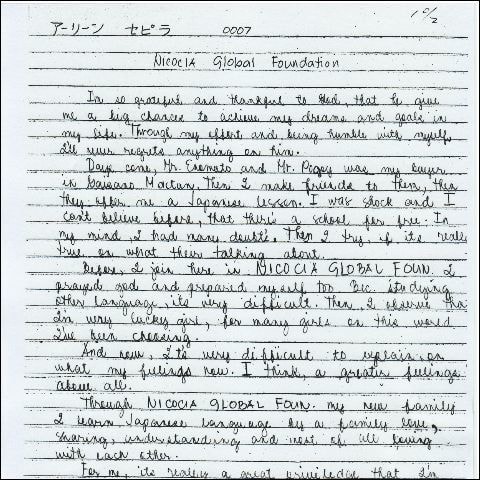 10/2
アーリーン セピラ 0007
NICOCIA Global Foundation
I'm so grateful and thankful to God, that he give
me a big chances to achieve my dreams and goals in
my life. Through my effort and being humble with myself
I'll never regrets anything on him.
Days come, Mr. Enomoto and Mr. Peggy was my buyer
in Mactan. Then I make friends to them, then
they offer me a Japanese lesson. I was shock and I
can't believe before, that there's a school for free. In
my mind, I had many doubt's. Then I try, if its really
true, on what their talking about.
Before, I join here in NICOCIA GLOBAL FOUN. I
prayed god and prepared myself too. Bec. studying
other language, its very difficult. Then, I observe that
I'm very lucky girl, for many girls on this world
I've been choosing.
And now, I's very difficult to explain, on
what my feelings now. I think, a greater feelings
above all.
Through NICOCIA GLOBAL FOUN. my new family
I learn Japanese Language by a family love,
sharing, understanding and most of all loving
with each other.
For me, its really a great priviledge that I'm